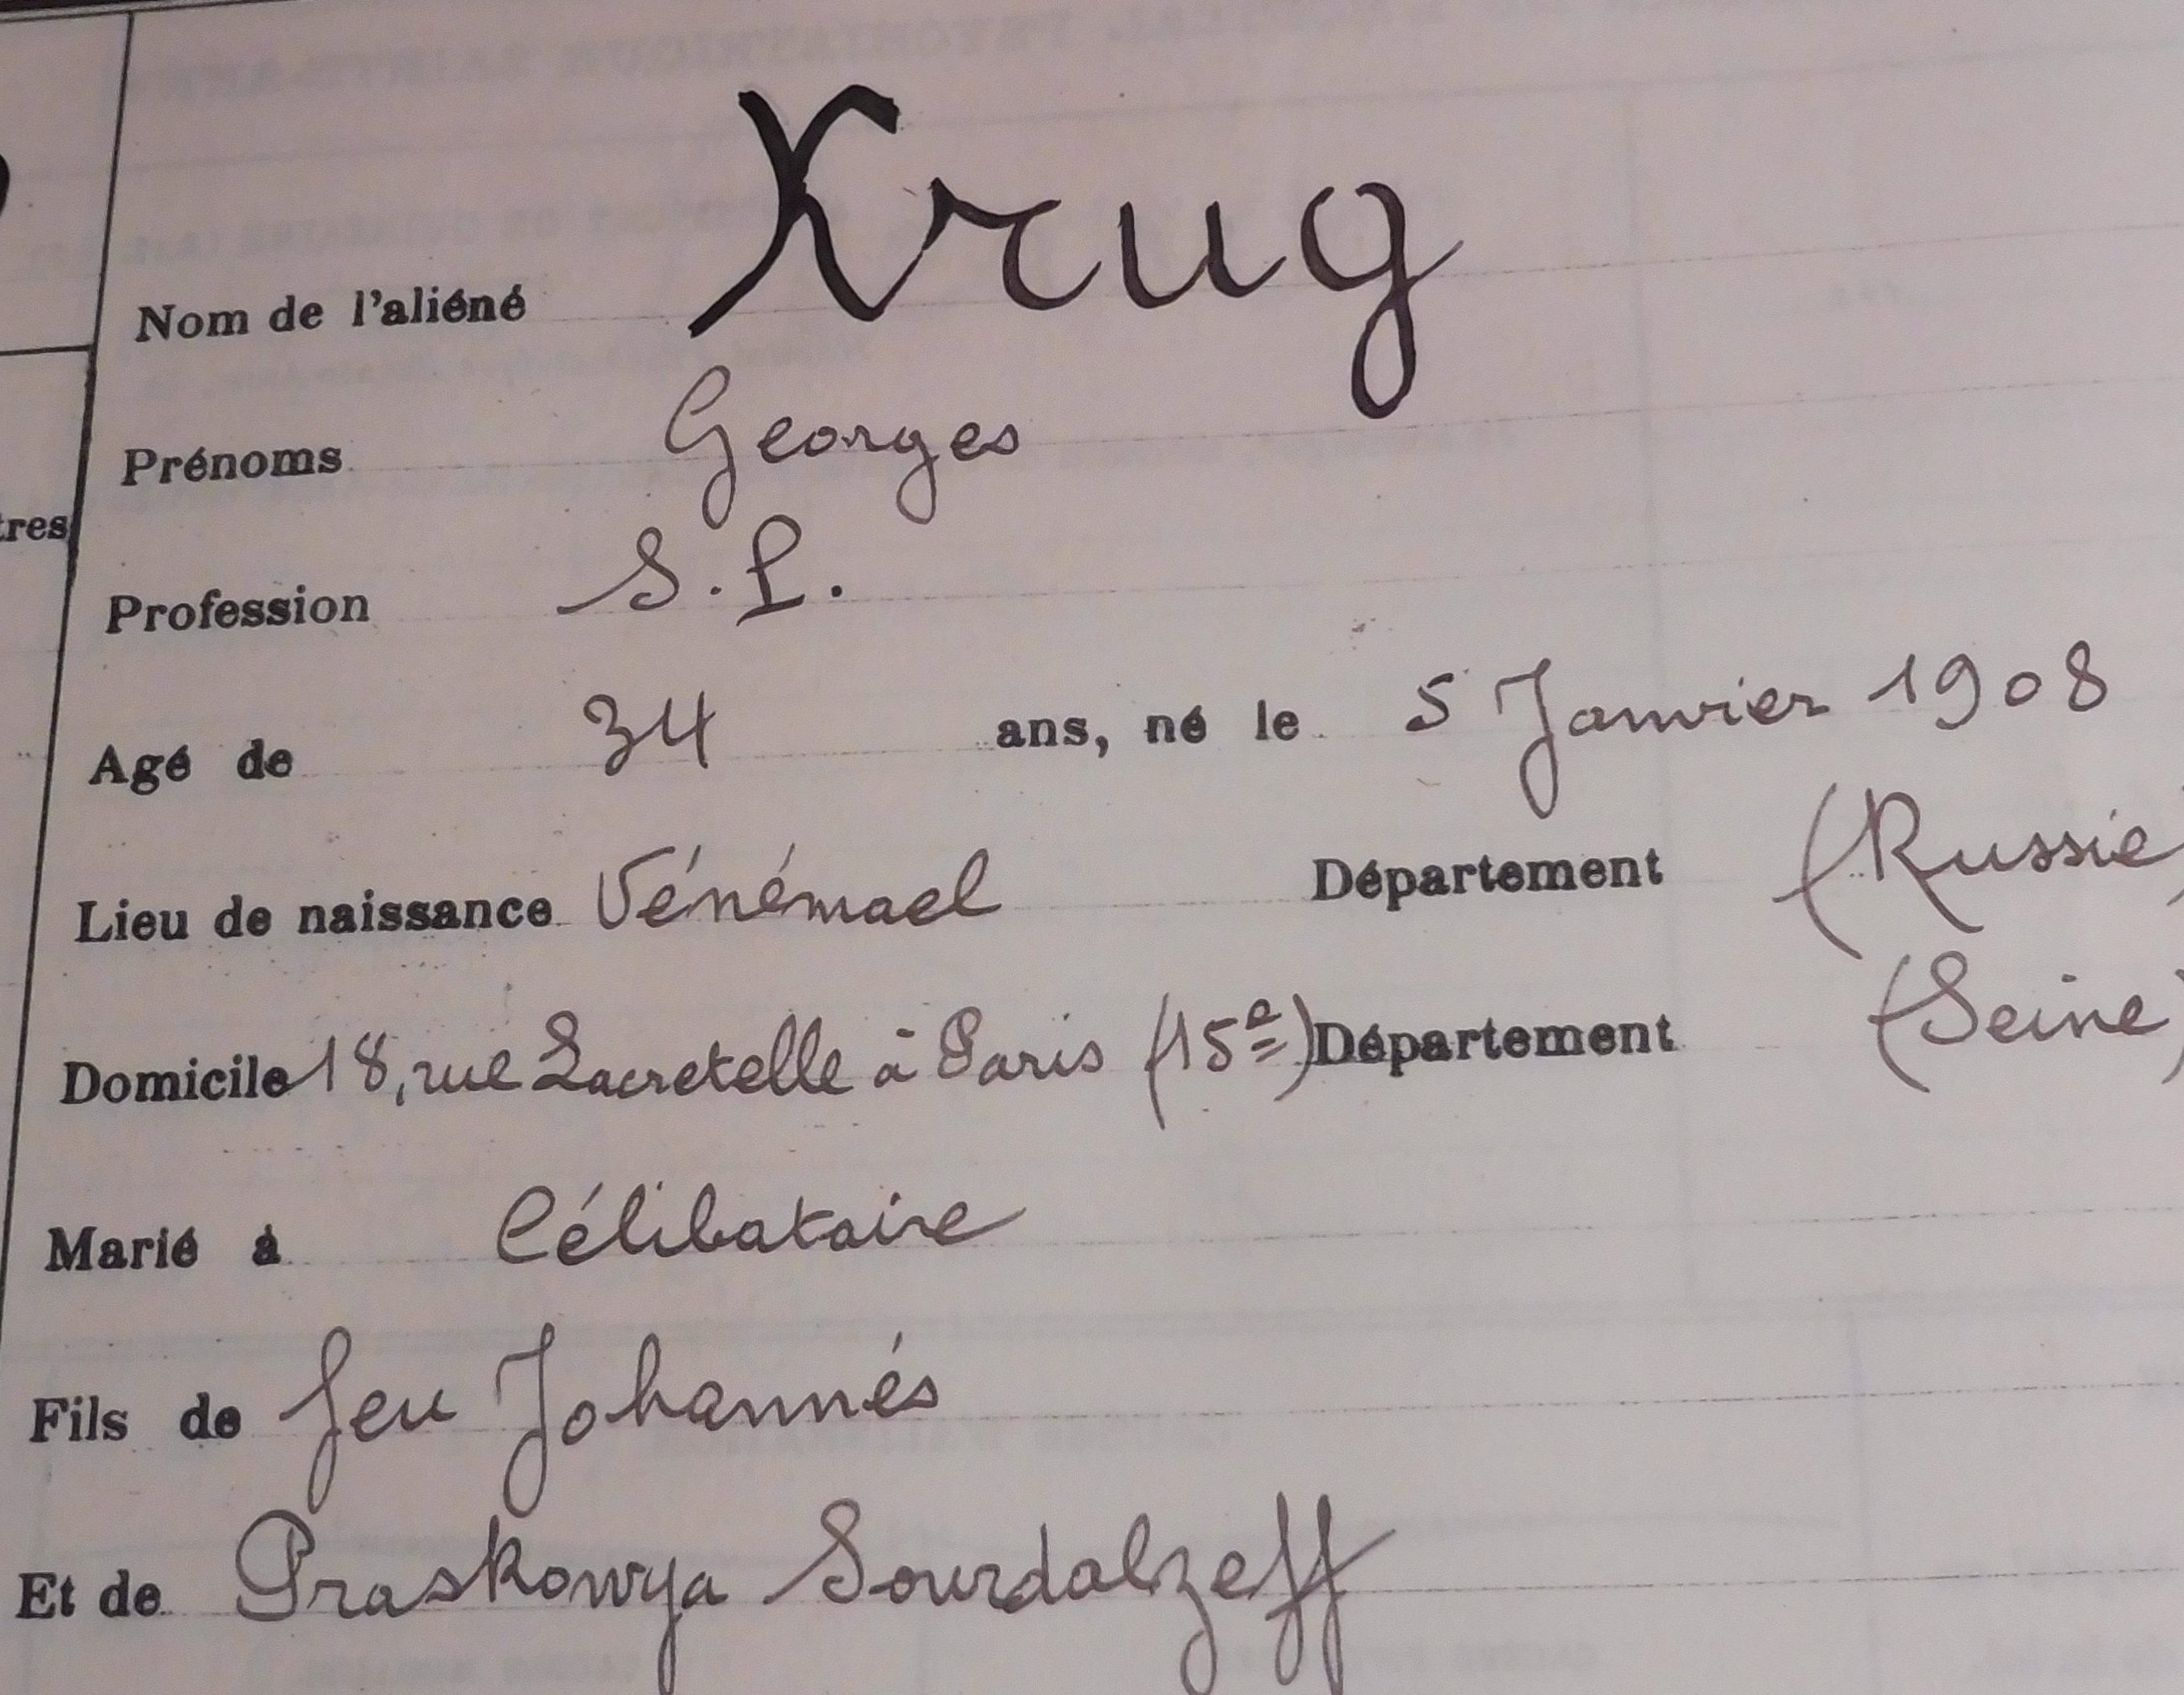 Krug
Nom de l'aliéné
Prénoms Georges
tres
Profession S.P.
Agé de 34 ans, né le 5 Janvier 1908
Lieu de naissance Vénémael Département (Russie)
Domicile 18, rue Lacretelle à Paris (15e) Département (Seine)
Marié à Célibataire
Fils de feu Johannés
Et de Praskowya Sourdalzeff